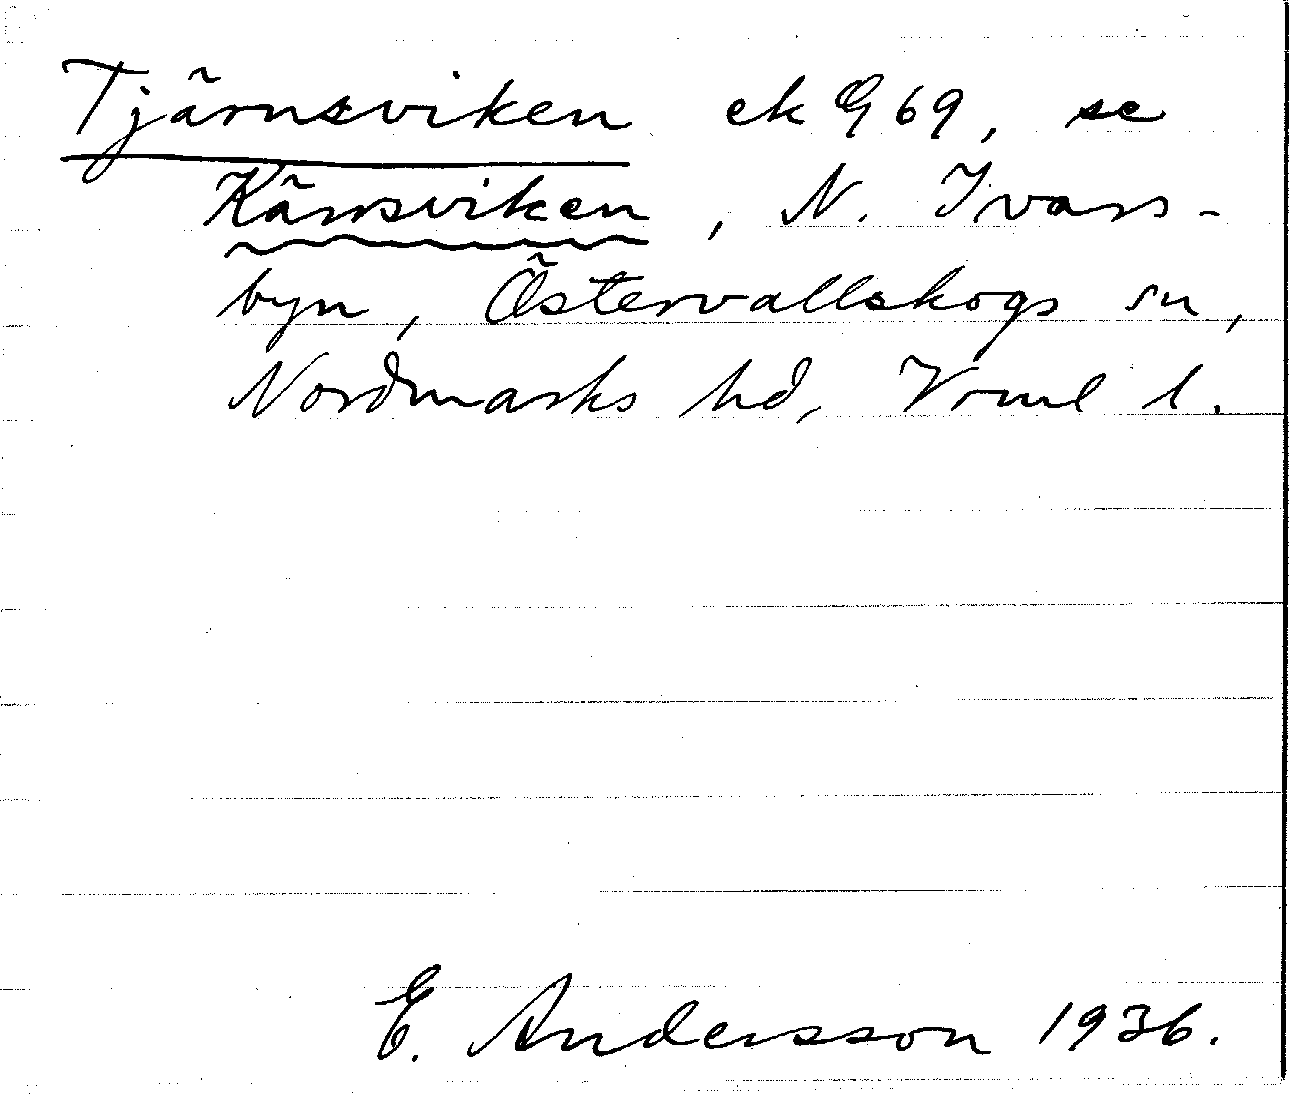 Tjärnsviken ek G 69, se
Kärnsviken, N. Ivars-
byn, Östervallskogs sn,
Nordmarks hd, Vrml l.
E. Andersson 1936.